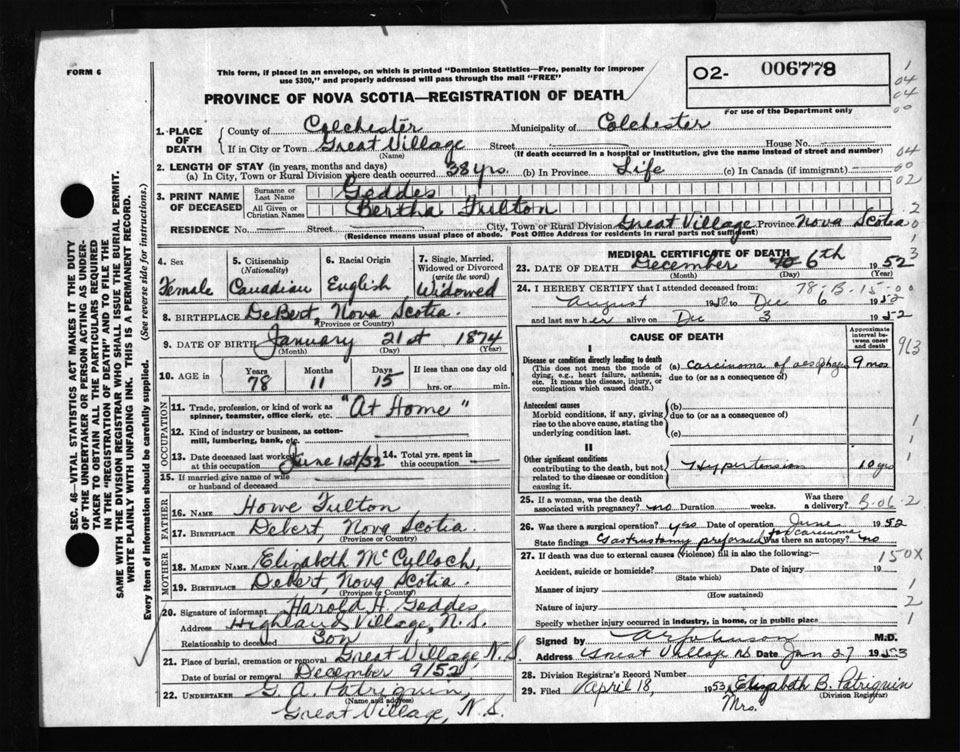 FORM 6
This form, if placed in an envelope, on which is printed "Dominion Statistics—Free, penalty for improper use $300," and properly addressed will pass through the mail "FREE"
O2- 006778
For use of the Department only
PROVINCE OF NOVA SCOTIA—REGISTRATION OF DEATH
1. PLACE OF DEATH { County of Colchester Municipality of Colchester
If in City or Town Great Village Street House No.
(Name) (If death occurred in a hospital or institution, give the name instead of street and number)
2. LENGTH OF STAY (in years, months and days)
(a) In City, Town or Rural Division where death occurred 38 yrs. (b) In Province Life (c) In Canada (if immigrant)
3. PRINT NAME OF DECEASED { Surname or Last Name Geddes
All Given or Christian Names Bertha Fulton
RESIDENCE No. Street City, Town or Rural Division Great Village Province Nova Scotia
(Residence means usual place of abode. Post Office Address for residents in rural parts not sufficient)
4. Sex 5. Citizenship (Nationality) 6. Racial Origin 7. Single, Married, Widowed or Divorced (write the word)
Female Canadian English Widowed
8. BIRTHPLACE DeBert, Nova Scotia.
(Province or Country)
9. DATE OF BIRTH January 21st 1874
(Month) (Day) (Year)
10. AGE IN Years Months Days If less than one day old
78 11 15 hrs. or min.
OCCUPATION
11. Trade, profession, or kind of work as spinner, teamster, office clerk, etc. "At Home"
12. Kind of industry or business, as cotton-mill, lumbering, bank, etc.
13. Date deceased last worked at this occupation June 1st/52 14. Total yrs. spent in this occupation
15. If married give name of wife or husband of deceased
FATHER
16. NAME Howe Fulton
17. BIRTHPLACE Debert, Nova Scotia.
(Province or Country)
MOTHER
18. MAIDEN NAME Elizabeth McCulloch,
19. BIRTHPLACE Debert, Nova Scotia.
(Province or Country)
20. Signature of informant Harold H. Geddes
Address Highland Village, N.S.
Relationship to deceased Son
21. Place of burial, cremation or removal Great Village N.S.
Date of burial or removal December 9/52
22. UNDERTAKER G. A. Patriquin,
(Name and address)
Great Village, N.S.
MEDICAL CERTIFICATE OF DEATH
23. DATE OF DEATH December 6th 1952
(Day) (Year)
24. I HEREBY CERTIFY that I attended deceased from: 78-B-15-00
August 1950 to Dec 6 1952
and last saw her alive on Dec 3 1952
CAUSE OF DEATH
Approximate interval between onset and death
I
Disease or condition directly leading to death
(This does not mean the mode of dying, e.g., heart failure, asthenia, etc. It means the disease, injury, or complication which caused death.)
(a) Carcinoma of aesophagus 9 mos
due to (or as a consequence of)
Antecedent causes
Morbid conditions, if any, giving rise to the above cause, stating the underlying condition last.
(b)
due to (or as a consequence of)
(c)
II
Other significant conditions contributing to the death, but not related to the disease or condition causing it.
Hypertension 10 yrs
25. If a woman, was the death associated with pregnancy? no Duration weeks. Was there a delivery? B-06.2
26. Was there surgical operation? yes Date of operation June 1952
State findings Gastrostomy preformed for carcinoma Was there an autopsy? no
27. If death was due to external causes (violence) fill in also the following:—
Accident, suicide or homicide? Date of injury 19
(State which)
Manner of injury
(How sustained)
Nature of injury
Specify whether injury occurred in industry, in home, or in public place
Signed by M.D.
Address Great Village NS Date Jan 27 1953
28. Division Registrar's Record Number
29. Filed April 18, 1953 Elizabeth B. Patriquin
(Division Registrar)
Mrs.
1
04
04
00
04
00
02
2
0
1
3
963
1
1
1
150X
1
2
1
SEC 46—VITAL STATISTICS ACT MAKES IT THE DUTY OF THE UNDERTAKER OR PERSON ACTING AS UNDERTAKER TO OBTAIN ALL THE PARTICULARS REQUIRED IN THE "REGISTRATION OF DEATH" AND TO FILE THE SAME WITH THE DIVISION REGISTRAR WHO SHALL ISSUE THE BURIAL PERMIT.
WRITE PLAINLY WITH UNFADING INK. THIS IS A PERMANENT RECORD.
Every item of information should be carefully supplied. (See reverse side for instructions.)